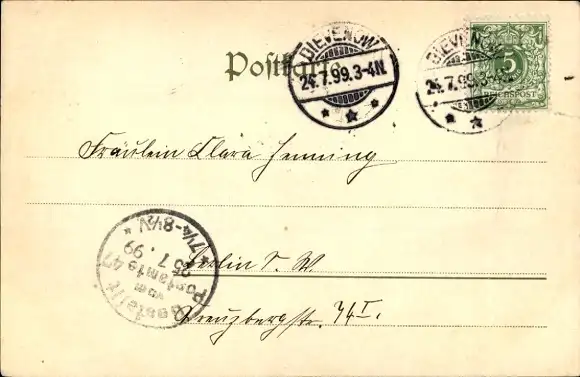 Postkarte
DIEVENOW
24.7.99.3-4N.
DIEVENOW
24.7.99.3-4N.
5
REICHSPOST
Fräulein Clara Henning
Berlin S. W.
Kreuzbergstr. 74 I.
Bestellt
vom
Postamte 47
25.7.99
7¼-8½N